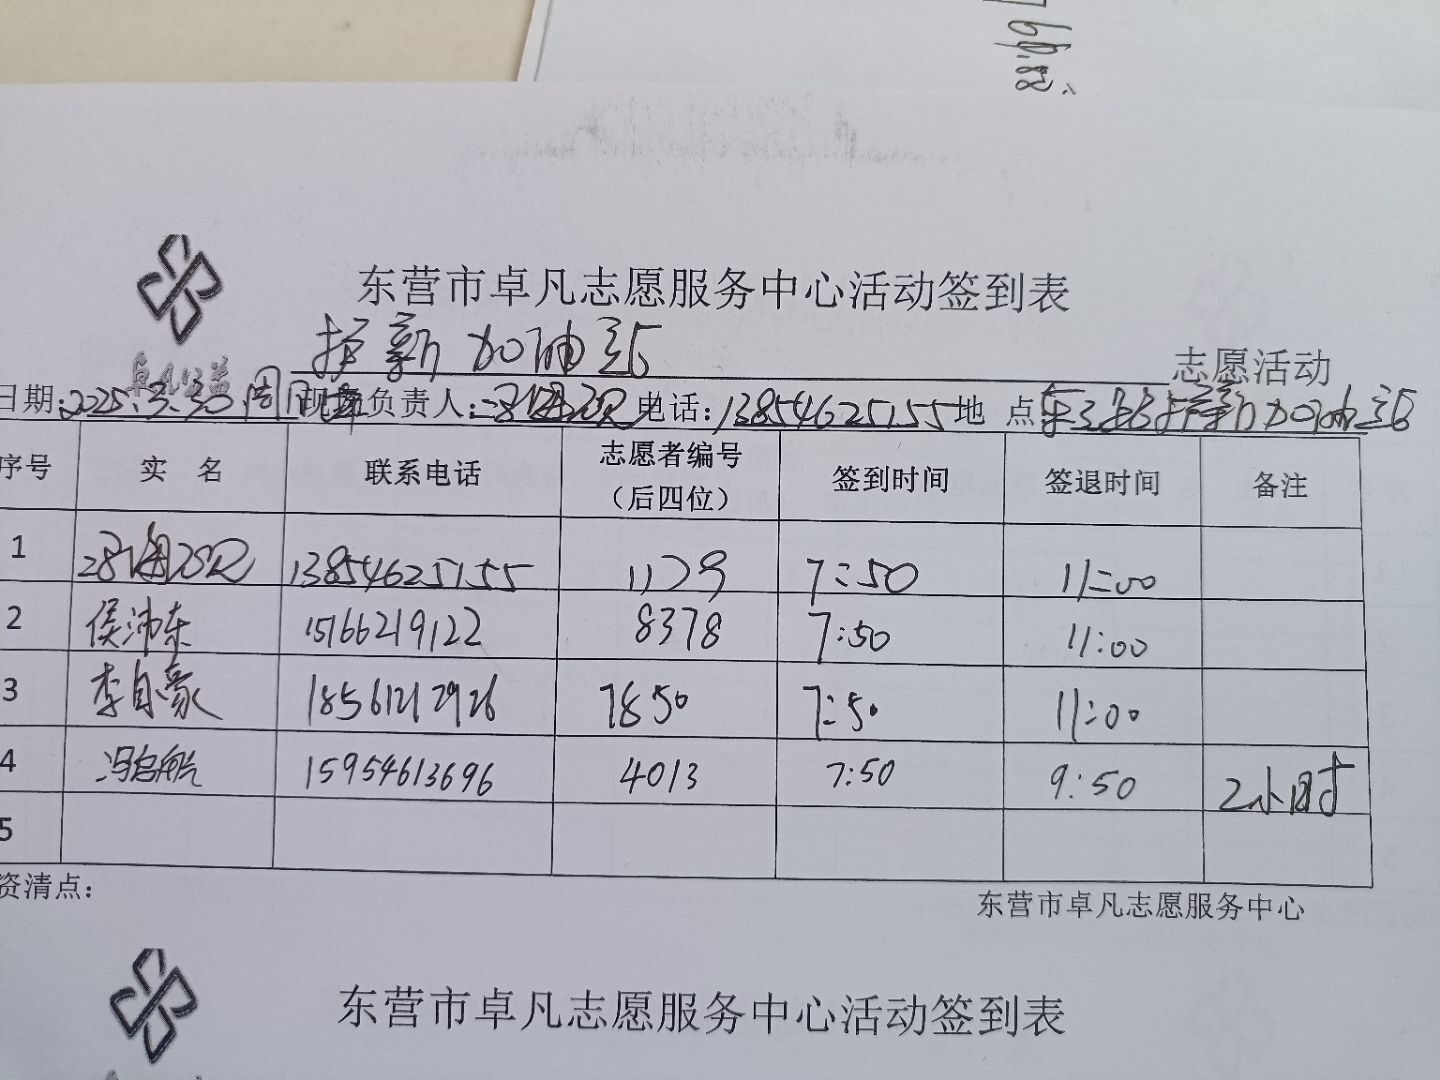 东营市卓凡志愿服务中心活动签到表
护薪加油站 志愿活动
日期:2025.3.30 周日 现场负责人: 电话:13854625155 地 点 护薪加油站
序号 实 名 联系电话 志愿者编号（后四位） 签到时间 签退时间 备注
1 13854625155 1129 7:50 11:00
2 侯沛东 15166219122 8378 7:50 11:00
3 李自豪 18561212926 7850 7:50 11:00
4 冯启航 15954613696 4013 7:50 9:50 2小时
5
资清点:
东营市卓凡志愿服务中心
东营市卓凡志愿服务中心活动签到表